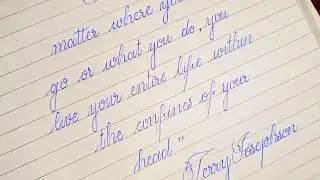 matter where you
go or what you do, you
live your entire life within
the confines of your
head"
Terry Josephson